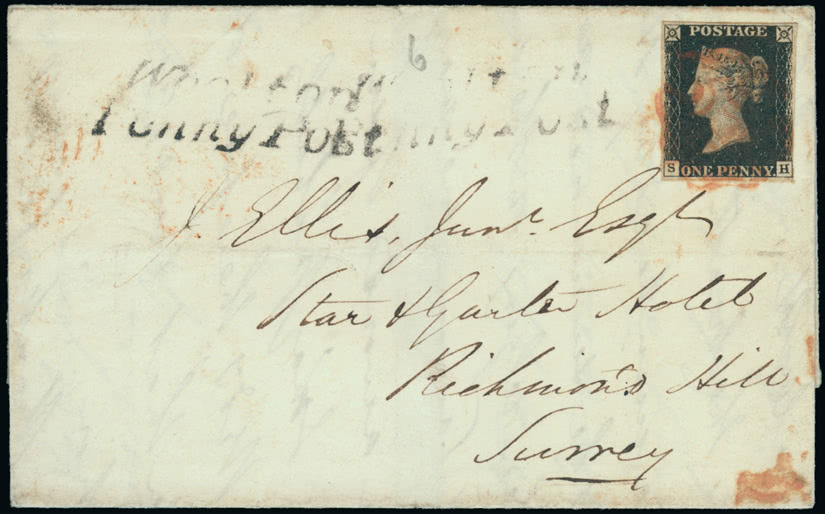 6
Penny Post Penny Post
POSTAGE
S ONE PENNY H
J. Ellis, Junr. Esqr
Star & Garter Hotel
Richmond Hill
Surrey